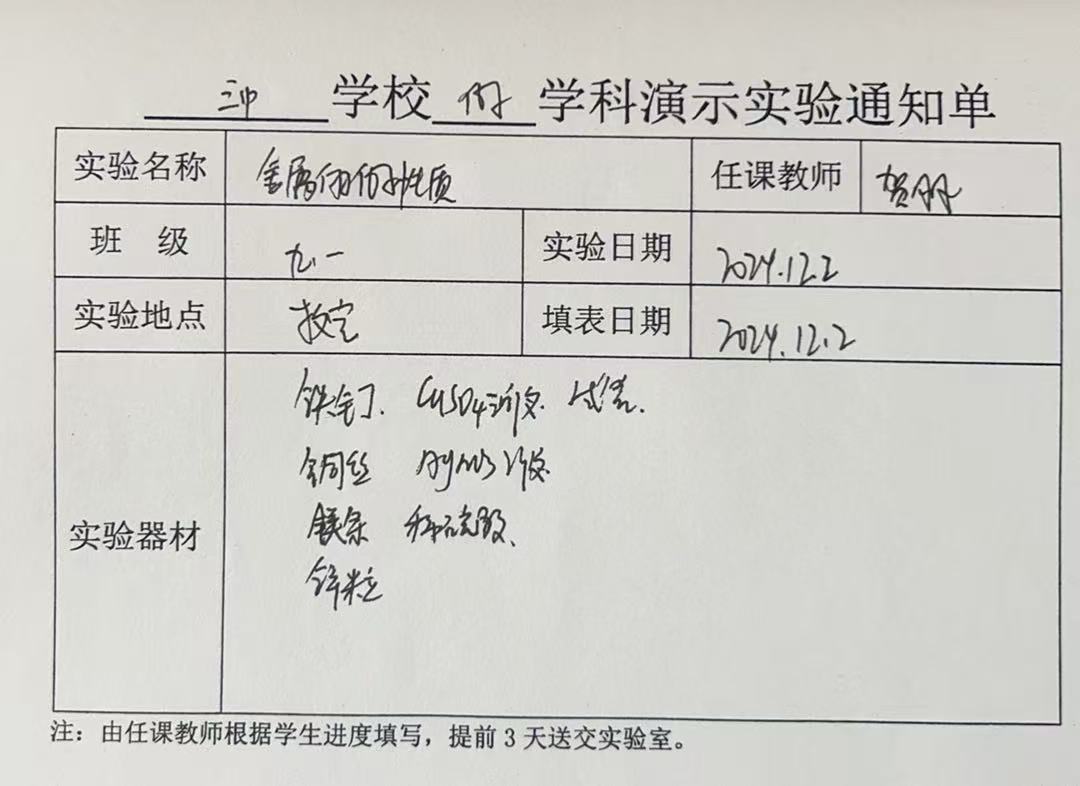 三中 学校 化学 学科演示实验通知单
实验名称 金属的化学性质 任课教师 贺丹
班 级 九.一 实验日期 2024.12.2
实验地点 教室 填表日期 2024.12.2
铁钉. CuSO4溶液. 试管.
铜丝 AgNO3溶液
镁条 稀硫酸、
实验器材
锌粒
注：由任课教师根据学生进度填写，提前 3 天送交实验室。